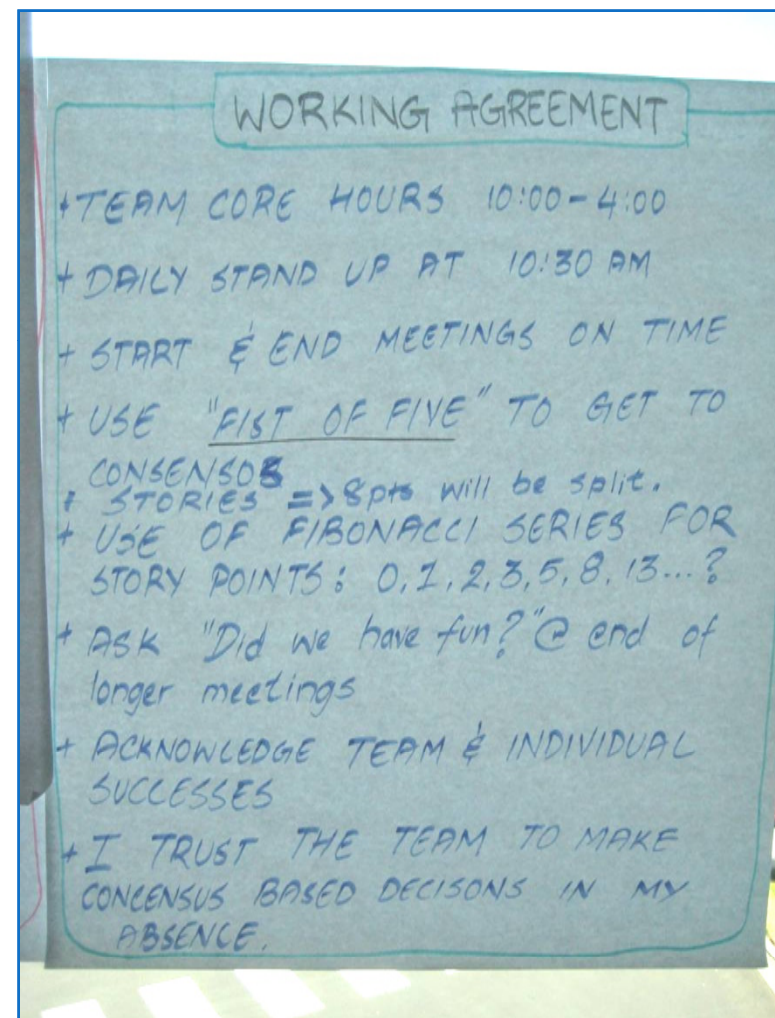 WORKING AGREEMENT
+ TEAM CORE HOURS 10:00-4:00
+ DAILY STAND UP AT 10:30 AM
+ START & END MEETINGS ON TIME
+ USE "FIST OF FIVE" TO GET TO
CONSENSOS
+ STORIES => 8pts will be split.
+ USE OF FIBONACCI SERIES FOR
STORY POINTS: 0,1,2,3,5,8,13...?
+ ASK "Did we have fun?" @ end of
longer meetings
+ ACKNOWLEDGE TEAM & INDIVIDUAL
SUCCESSES
+ I TRUST THE TEAM TO MAKE
CONCENSUS BASED DECISONS IN MY
ABSENCE.